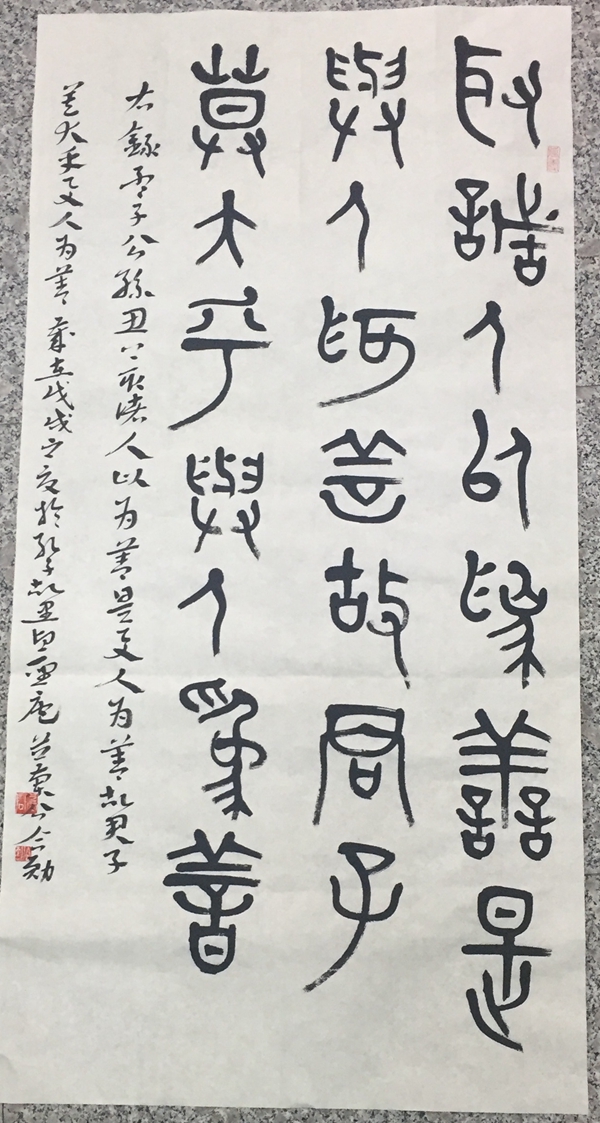 取諸人以為善是
與人為善故君子
莫大乎與人為善
右錄孟子公孫丑上取諸人以為善是與人為善故君子
莫大乎與人為善歲在戊戌之夏於孔子故里